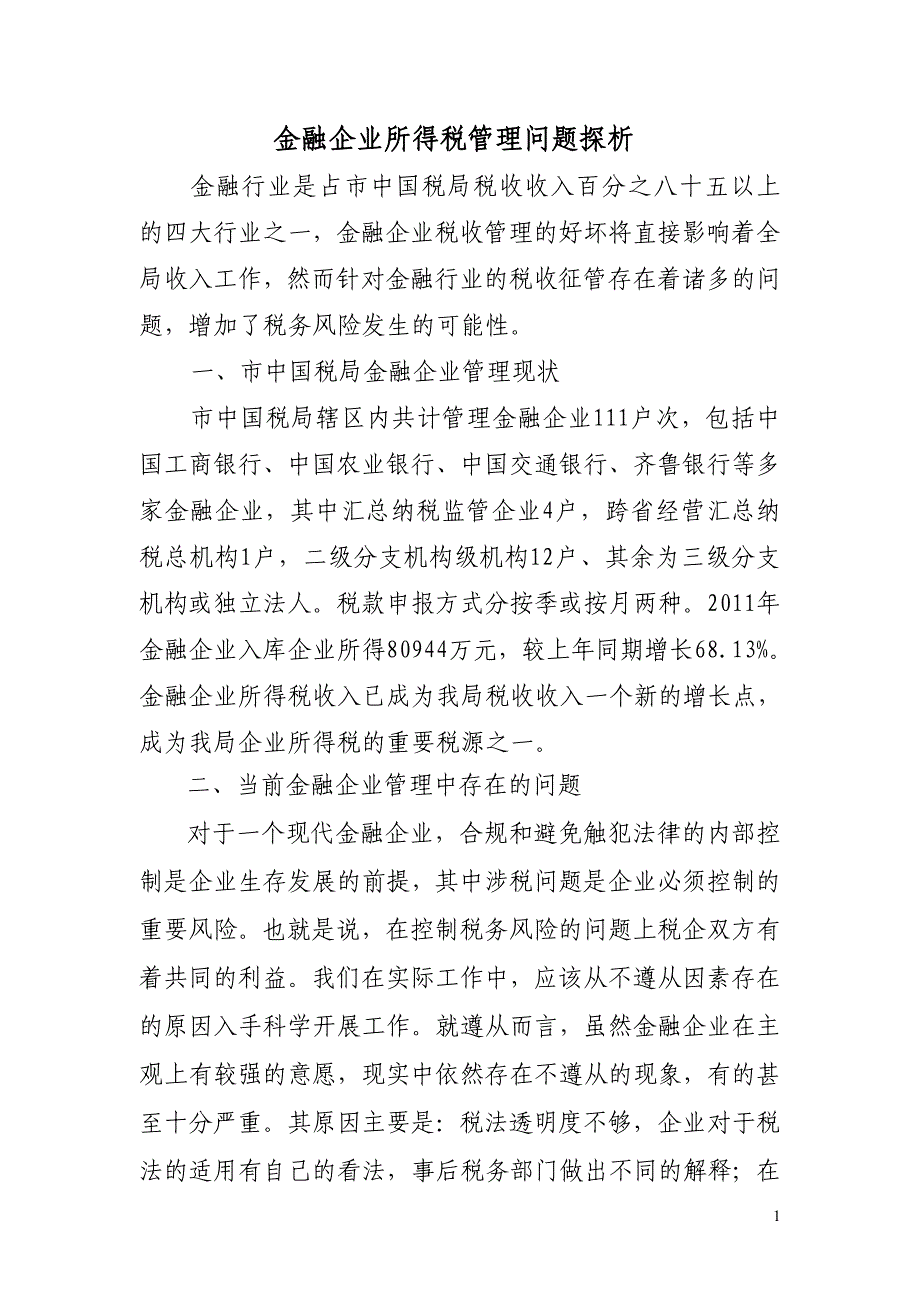 金融企业所得税管理问题探析
金融行业是占市中国税局税收收入百分之八十五以上
的四大行业之一，金融企业税收管理的好坏将直接影响着全
局收入工作，然而针对金融行业的税收征管存在着诸多的问
题，增加了税务风险发生的可能性。
一、市中国税局金融企业管理现状
市中国税局辖区内共计管理金融企业111户次，包括中
国工商银行、中国农业银行、中国交通银行、齐鲁银行等多
家金融企业，其中汇总纳税监管企业4户，跨省经营汇总纳
税总机构1户，二级分支机构级机构12户、其余为三级分支
机构或独立法人。税款申报方式分按季或按月两种。2011年
金融企业入库企业所得80944万元，较上年同期增长68.13%。
金融企业所得税收入已成为我局税收收入一个新的增长点，
成为我局企业所得税的重要税源之一。
二、当前金融企业管理中存在的问题
对于一个现代金融企业，合规和避免触犯法律的内部控
制是企业生存发展的前提，其中涉税问题是企业必须控制的
重要风险。也就是说，在控制税务风险的问题上税企双方有
着共同的利益。我们在实际工作中，应该从不遵从因素存在
的原因入手科学开展工作。就遵从而言，虽然金融企业在主
观上有较强的意愿，现实中依然存在不遵从的现象，有的甚
至十分严重。其原因主要是：税法透明度不够，企业对于税
法的适用有自己的看法，事后税务部门做出不同的解释；在
1